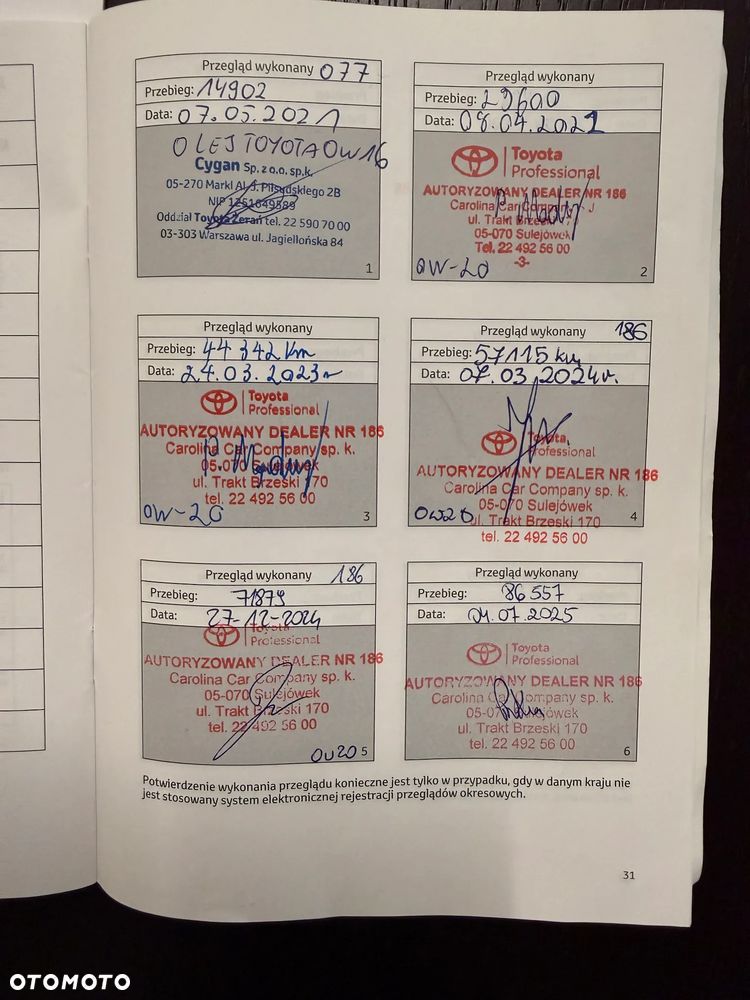 Przegląd wykonany 077
Przebieg: 14902
Data: 07.05.2021
OLEJ TOYOTA OW16
Cygan Sp. z o.o. sp.k.
05-270 Marki Al. J. Piłsudskiego 2B
NIP 1251649589
Oddział Toyota Żerań tel. 22 590 70 00
03-303 Warszawa ul. Jagiellońska 84
1
Przegląd wykonany
Przebieg: 29600
Data: 08.04.2022
Toyota
Professional
AUTORYZOWANY DEALER NR 186
Carolina Car Company
ul. Trakt Brzeski
05-070 Sulejówek
Tel. 22 492 56 00
-3-
OW-20
2
Przegląd wykonany
Przebieg: 44 342 km
Data: 24.03.2023r
Toyota
Professional
AUTORYZOWANY DEALER NR 186
Carolina Car Company sp. k.
05-070 Sulejówek
ul. Trakt Brzeski 170
tel. 22 492 56 00
OW-20
3
Przegląd wykonany 186
Przebieg: 57115 km
Data: 07.03.2024r.
Toyota
Professional
AUTORYZOWANY DEALER NR 186
Carolina Car Company sp. k.
05-070 Sulejówek
ul. Trakt Brzeski 170
tel. 22 492 56 00
OW20
4
Przegląd wykonany 186
Przebieg: 71879
Data: 27-12-2024
Toyota
Professional
AUTORYZOWANY DEALER NR 186
Carolina Car Company sp. k.
05-070 Sulejówek
ul. Trakt Brzeski 170
tel. 22 492 56 00
OW20
5
Przegląd wykonany
Przebieg: 86 557
Data: 01.07.2025
Toyota
Professional
AUTORYZOWANY DEALER NR 186
Carolina Car Company sp. k.
05-070 Sulejówek
ul. Trakt Brzeski 170
tel. 22 492 56 00
6
Potwierdzenie wykonania przeglądu konieczne jest tylko w przypadku, gdy w danym kraju nie
jest stosowany system elektronicznej rejestracji przeglądów okresowych.
31
OTOMOTO